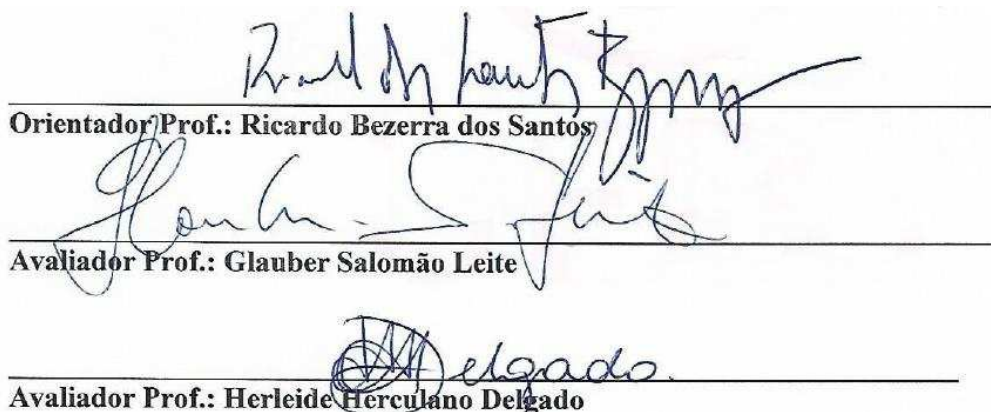 Orientador Prof.: Ricardo Bezerra dos Santos
Avaliador Prof.: Glauber Salomão Leite
Delgado
Avaliador Prof.: Herleide Herculano Delgado